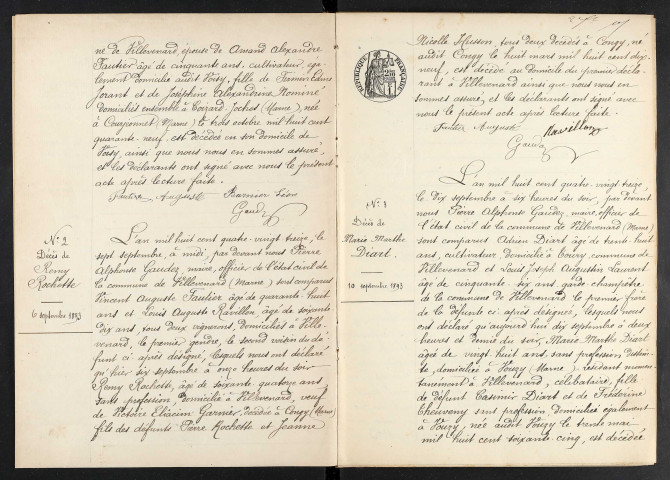 né de Villevenard, épouse de Amand Alexandre
Fautier âgé de cinquante ans, cultivateur, éga-
lement domicilié audit Voisy, fille de Firmin
Jorant et de Joséphine Alexandrine
domiciliés ensemble à Coizard-Joches (Marne), née
à Courjeonnet (Marne) le trois octobre mil huit cent
quarante-neuf, est décédée en son domicile de
Voisy, ainsi que nous nous en sommes assuré,
et les déclarants ont signé avec nous le présent
acte après lecture faite.
Fautier Auguste Barnier Léon
Gaudez
N° 2
Décès de
Remy
Rochette
6 septembre 1893
L'an mil huit cent quatre-vingt treize, le
sept septembre, à midi, par devant nous Pierre
Alphonse Gaudez, maire, officier de l'état civil de
la commune de Villevenard (Marne) sont comparus
Vincent Auguste Fautier âgé de quarante-huit
ans et Louis Auguste Ravellon, âgé de soixante-
dix ans, tous deux vignerons, domiciliés à Ville-
venard, le premier gendre, le second voisin du dé-
funt ci-après désigné, lesquels nous ont déclaré
qu'hier six septembre à onze heures du soir
Remy Rochette, âgé de soixante quatorze ans,
sans profession, domicilié à Villevenard, veuf
de Victoire Garnier, décédée à Congy (Marne)
fils des défunts Pierre Rochette et Jeanne
Nicolle Husson, tous deux décédés à Congy, né
audit Congy le huit mars mil huit cent dix-
neuf, est décédé au domicile du premier décla-
rant à Villevenard ainsi que nous nous en
sommes assuré, et les déclarants ont signé avec
nous le présent acte après lecture faite.
Fautier Auguste Ravellon
Gaudez
RÉPUBLIQUE FRANÇAISE
N° 3
Décès de
Marie Marthe
Diart
10 septembre 1893
L'an mil huit cent quatre-vingt treize,
le dix septembre à six heures du soir, par devant
nous Pierre Alphonse Gaudez, maire, officier de
l'état civil de la commune de Villevenard (Marne)
sont comparus Adrien Diart âgé de trente-huit
ans, cultivateur, domicilié à Coury, commune de
Villevenard et Louis Joseph Augustin Laurent
âgé de cinquante-six ans, garde champêtre
de la commune de Villevenard le premier frère
de la défunte ci-après désignée, lesquels nous
ont déclaré qu'aujourd'hui dix septembre à deux
heures et demie du soir, Marie Marthe Diart
âgée de vingt huit ans, sans profession
domiciliée à Vouzy (Marne), résidant momen-
tanément à Villevenard, célibataire, fille
de défunt Casimir Diart et de Frédérine
Cheuveny sans profession domiciliée également
à Vouzy, née audit Vouzy le trente mai
mil huit cent soixante-cinq, est décédée